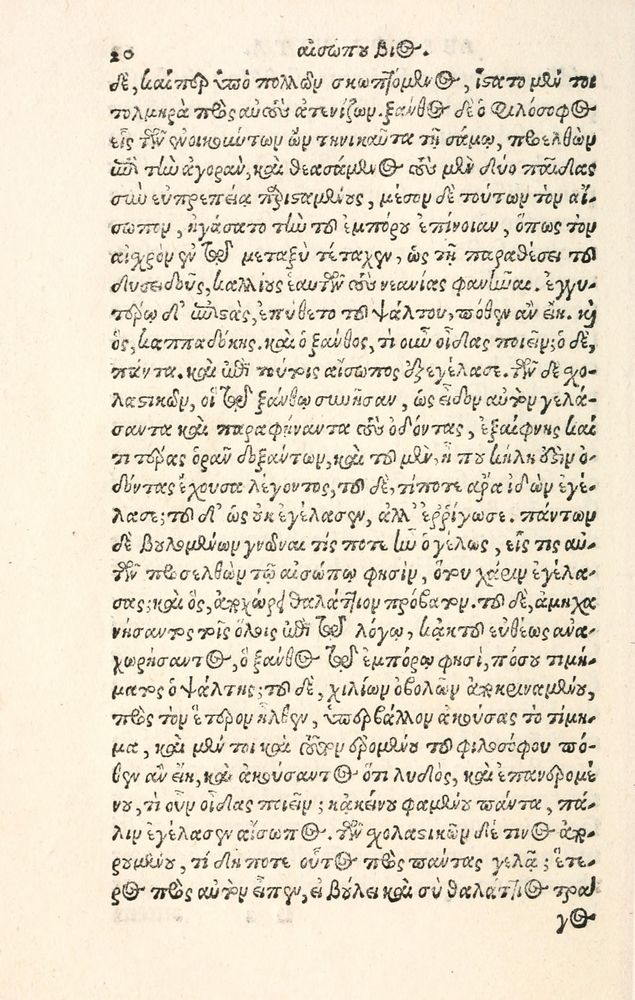 20 αἰσώπου βίος.
δὲ, καίπερ ὑπὸ πολλῶν σκωπτόμενος, ἵστατο μέν τοι
τολμηρὰ πρὸς αὐτοὺς ἀτενίζων. ξάνθος δὲ ὁ φιλόσοφος
εἷς τῶν ἐνοικούντων ὢν τηνικαῦτα τῇ σάμῳ, προελθὼν
ἐπὶ τὴν ἀγορὰν, καὶ θεασάμενος τοὺς μὲν δύο παῖδας
σὺν εὐπρεπείᾳ παρισταμένους, μέσον δὲ τούτων τὸν αἴ-
σωπον, ἠγάσατο τὴν τοῦ ἐμπόρου ἐπίνοιαν, ὅπως τὸν
αἰσχρὸν ἐν τῷ μεταξὺ τέταχεν, ὡς τῇ παραθέσει τοῦ
δυσειδοῦς, καλλίους ἑαυτῶν τοὺς νεανίας φανῆναι. ἐγγυ-
τέρω δ' ἐπιστὰς, ἐπύθετο τοῦ ψάλτου, πόθεν ἂν εἴη. καὶ
ὃς, καππαδόκης. καὶ ὁ ξάνθος, τί οὖν οἶδας ποιεῖν; ὁ δὲ,
πάντα. καὶ ἐπὶ τούτοις αἴσωπος ἐξεγέλασε. τῶν δὲ σχο-
λαστικῶν, οἳ τῷ ξάνθῳ συνῆσαν, ὡς εἶδον αὐτὸν γελά-
σαντα καὶ παραφήναντα τοὺς ὀδόντας, ἐξαίφνης καί
τι τέρας ὁρᾶν δοξάντων, καὶ τοῦ μὲν, ἦ που κήλη ἐστὶν ὀ-
δόντας ἔχουσα λέγοντος, τοῦ δὲ, τί ποτε ἄρα ἰδὼν ἐγέ-
λασε; τοῦ δ' ὡς οὐκ ἐγέλασεν, ἀλλ' ἐρρίγωσε. πάντων
δὲ βουλομένων γνῶναι τίς ποτε ἦν ὁ γέλως, εἷς τις αὐ-
τῶν προσελθὼν τῷ αἰσώπῳ φησὶν, ὅτου χάριν ἐγέλα-
σας; καὶ ὃς, ἀποχώρει θαλάττιον πρόβατον. τοῦ δὲ, ἀμηχα
νήσαντος τοῖς ὅλοις ἐπὶ τῷ λόγῳ, κἀκ τοῦ εὐθέως ἀνα-
χωρήσαντος, ὁ ξάνθος τῷ ἐμπόρῳ φησὶ, πόσου τιμή-
ματος ὁ ψάλτης; τοῦ δὲ, χιλίων ὀβολῶν ἀποκριναμένου,
πρὸς τὸν ἕτερον ἦλθεν, ὑπερβάλλον ἀκούσας τὸ τίμη-
μα, καὶ μέν τοι καὶ τοῦτον ἐρομένου τοῦ φιλοσόφου πό-
θεν ἂν εἴη, καὶ ἀκούσαντος ὅτι λυδὸς, καὶ ἐπανερομέ
νου, τί οὖν οἶδας ποιεῖν; κἀκείνου φαμένου πάντα, πά-
λιν ἐγέλασεν αἴσωπος. τῶν σχολαστικῶν δέ τινος ἀπο-
ρουμένου, τί δήποτε οὗτος πρὸς πάντας γελᾷ; ἕτε-
ρος πρὸς αὐτὸν εἶπεν, εἰ βούλει καὶ σὺ θαλάττιος τρά
γος